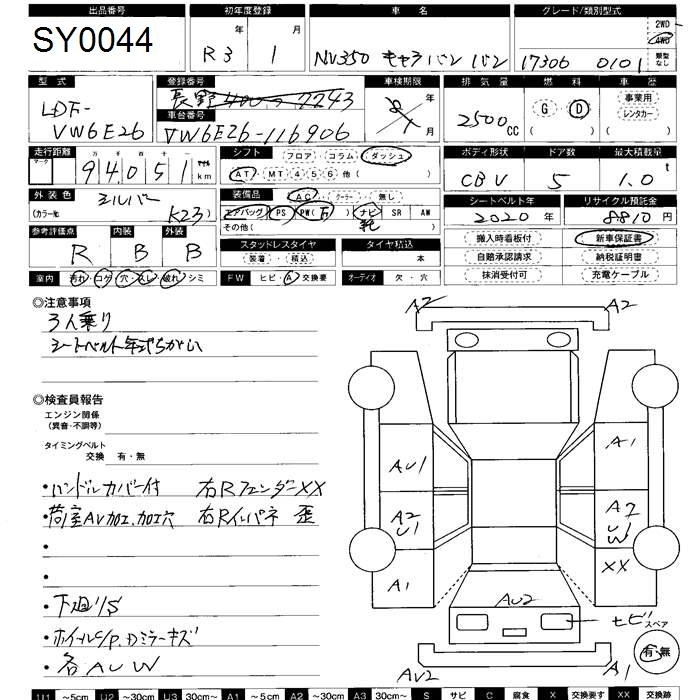 出品番号 初年度登録 車名 グレード/類別型式
SY0044 R3年 1月 NV350 キャラバン バン 17306 0101 2WD 4WD 類型なし
型式 登録番号 車検期限 排気量 燃料 車歴
LDF-VW6E26 長野 400 7743 年 月 2500cc G D ( ) 事業用 レンタカー ( )
車台番号
VW6E26-116906
走行距離 シフト フロア コラム ダッシュ ボディ形状 ドア数 最大積載量
マーク 万 千 百 十 一 AT MT 4 5 6 他( )
94051 km CBV 5 1.0t
外装色 シルバー 装備品 AC クーラー 無し シートベルト年 リサイクル預託金
(カラーNo. K23) エアバッグ PS PW(万) ナビ SR AW 2020年 8810円
その他( )
参考評価点 内装 外装 スタッドレスタイヤ タイヤ積込 搬入時看板付 新車保証書
R B B 装着 積込 本 自賠承認請求 納税証明書
室内 汚れ コゲ 穴 スレ 破れ シミ FW ヒビ A 交換要 オーディオ 欠・穴 抹消受付可 充電ケーブル
◎注意事項
3人乗り
シートベルト年式ちがい
◎検査員報告
エンジン関係
(異音・不調等)
タイミングベルト
交換 有・無
・ハンドルカバー付 右Rフェンダー XX
・荷室AV加工、加工穴 右Rインパネ 歪
・
・
・下廻り/S
・ホイールC/P、Dミラーキズ
・各AUW
A2 A2
AU1 A1
A2 U1 A2 U W
A1 XX
AU2
ヒビ スペア
有・無
AU2 A1
U1 ～5cm U2 ～30cm U3 30cm～ A1 ～5cm A2 ～30cm A3 30cm～ S サビ C 腐食 X 交換要す XX 交換跡